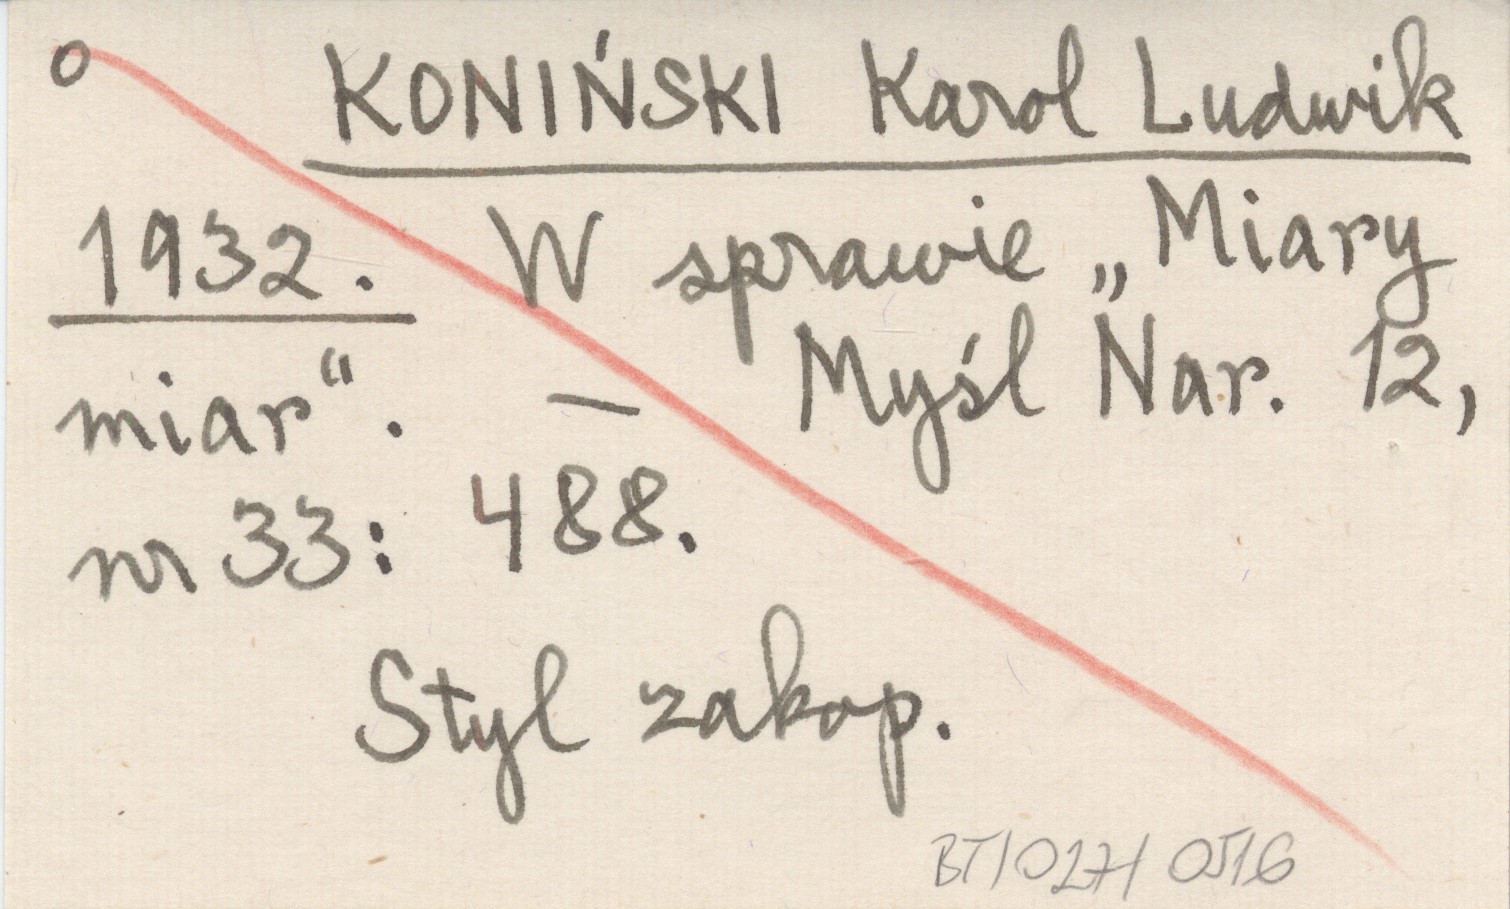 o KONIŃSKI Karol Ludwik
1932. W sprawie „Miary
miar“. — Myśl Nar. 12,
nr 33: 488.
Styl zakop.
BT/027/0516